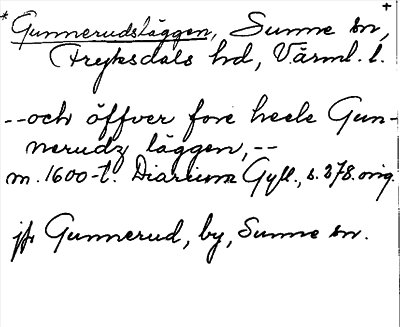 * Gunnerudsläggen, Sunne sn, +
Fryksdals hd, Värml. l.
--och öffver fore heele Gun-
nerudz läggen,--
m. 1600-t. Diarium Gyll., s. 278. orig.
jfr Gunnerud, by, Sunne sn.